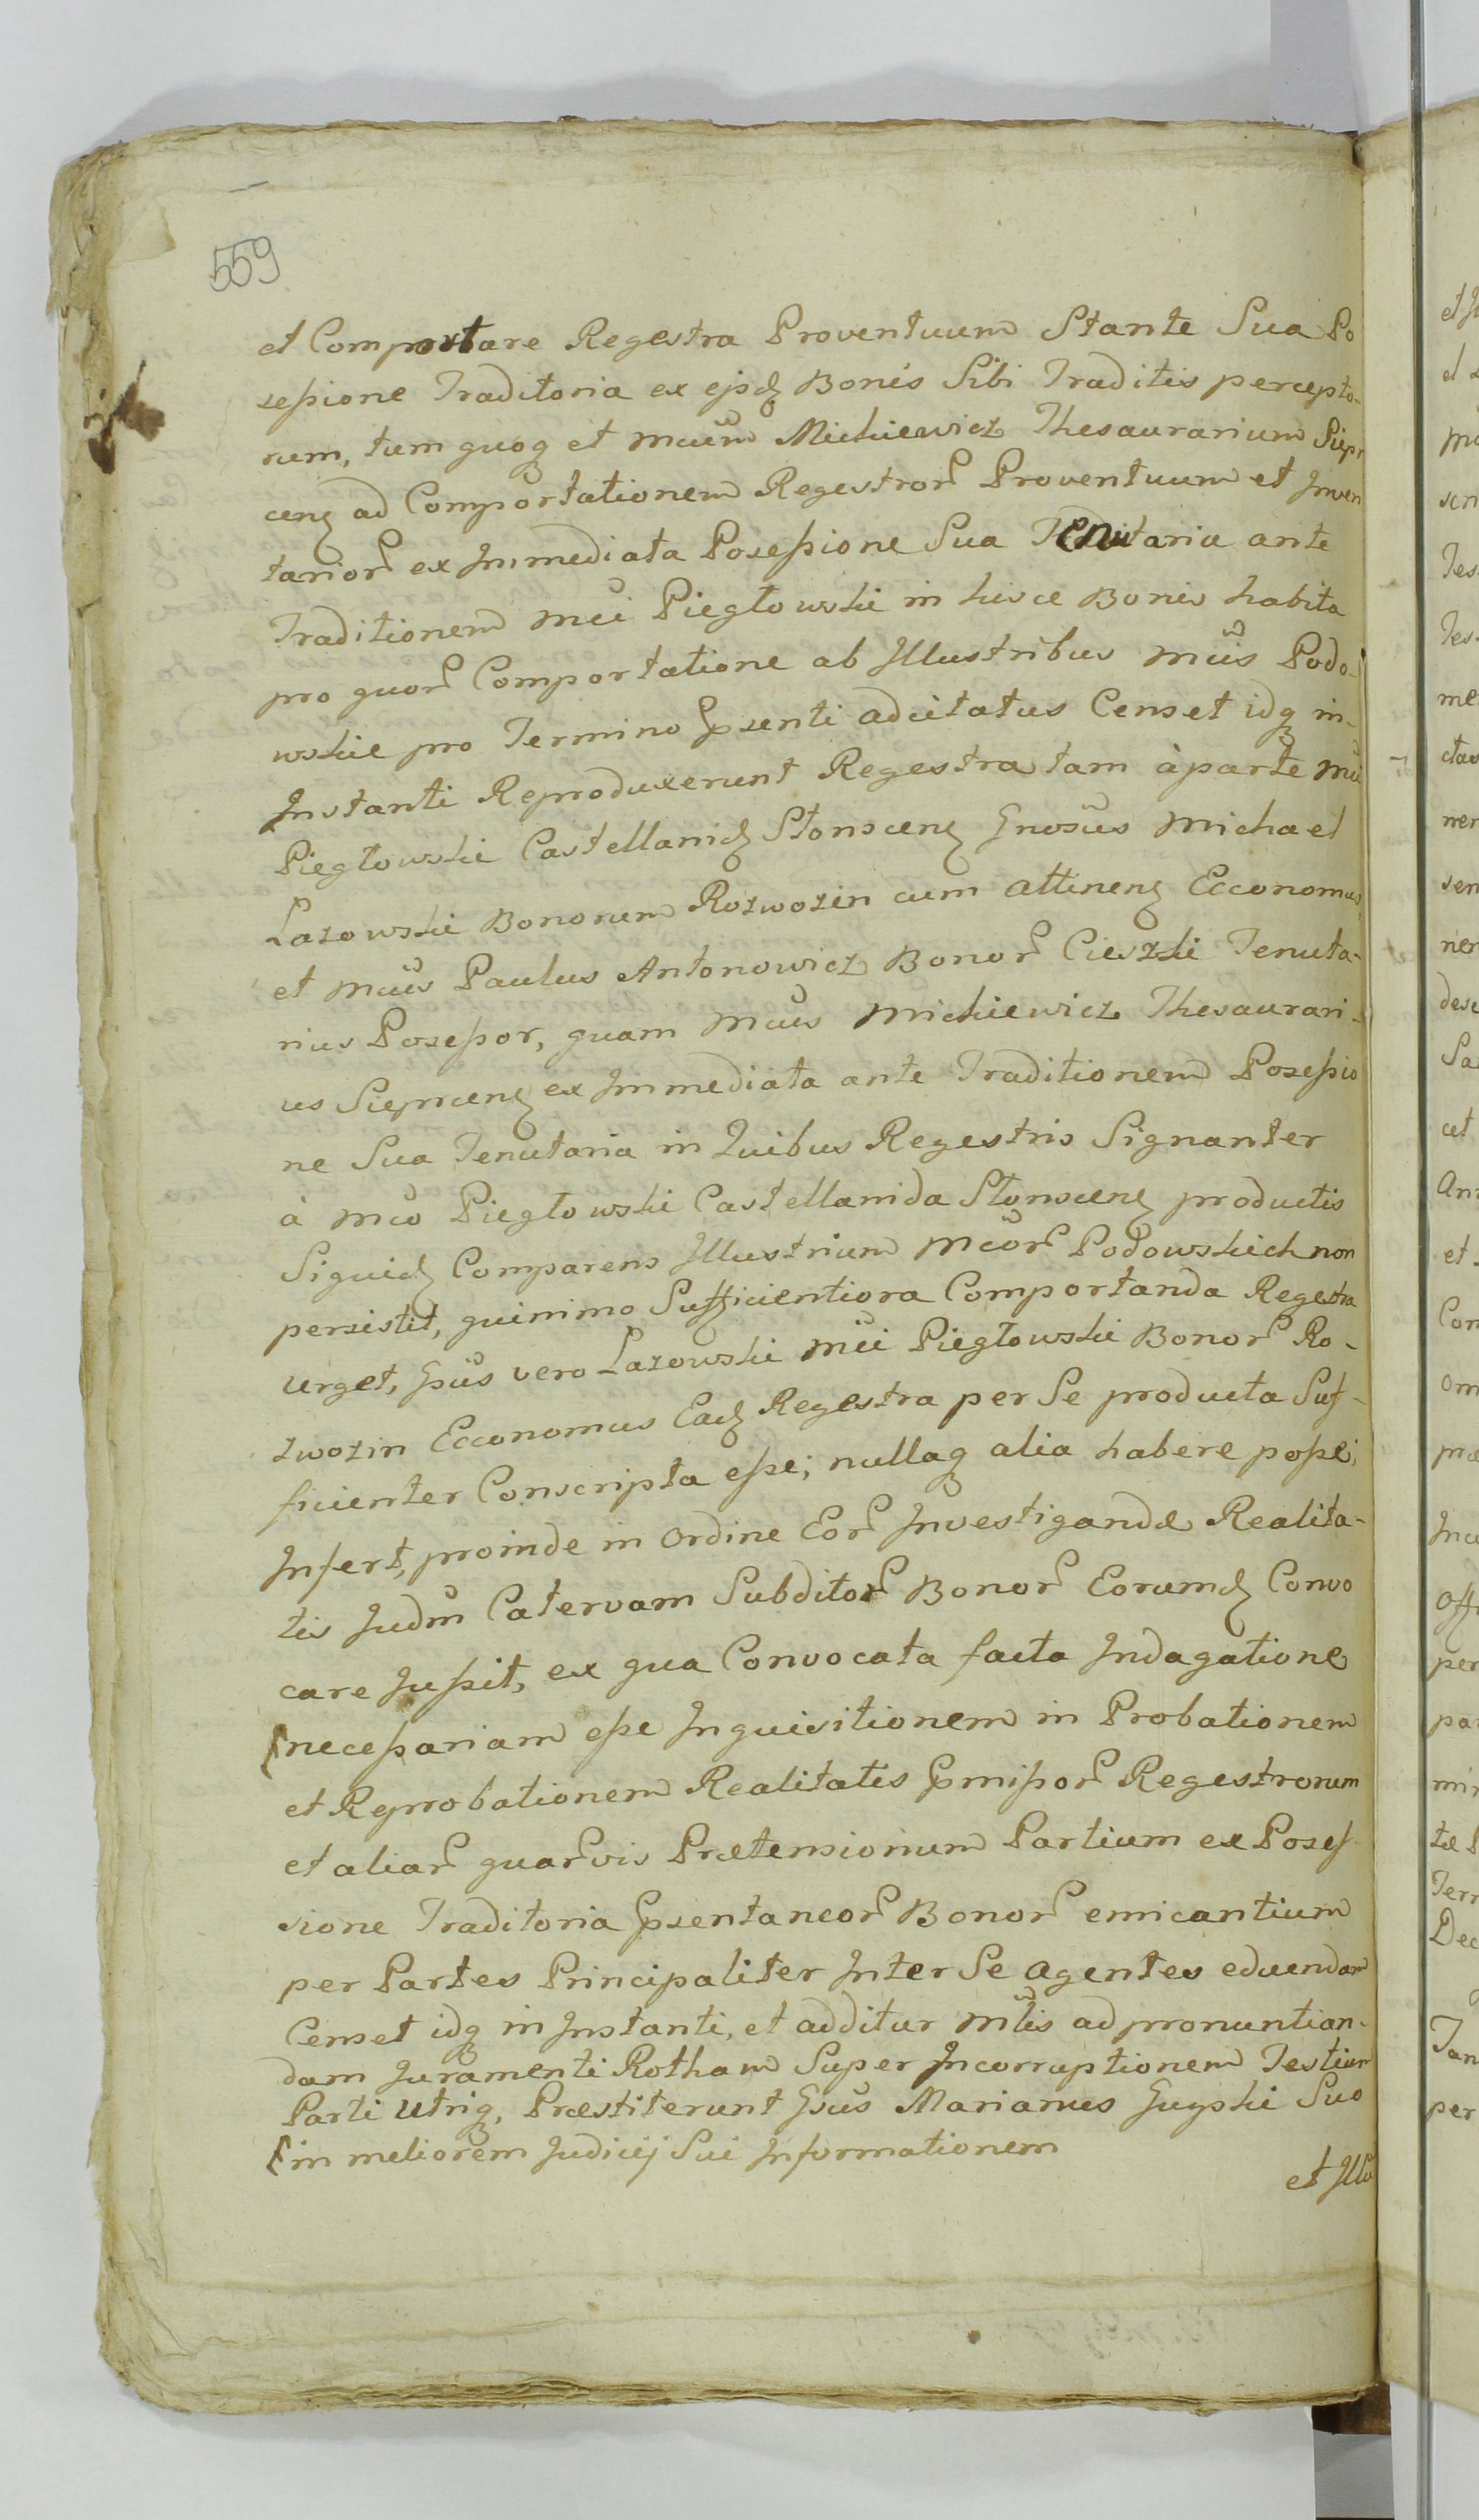 559
et Comportare Regestra Proventuum Stante Sua Po
seſsione Traditoria ex ejsdȝ Bonis Sibi Traditis percepto-
rum, tum quoqȝ et Mcum Michiewicz Thesaurarium Siepr
cenȝ ad Comportationem Regestror Proventuum et Inven
tarior ex Immediata Poseſsione Sua Tenutaria ante
Traditionem Mci Piegłowski in hisce Bonis habita
pro quor Comportatione ab Illustribus Mcis Podo-
wskie pro Termino Ppsenti adcitatus Censet idqȝ in-
Instanti Reproduxerunt Regestra tam à parte Mci
Piegłowski Castellanidȝ Słonscenȝ Gnosus Michael
Łazowski Bonorum Rozwozin cum attinenȝ Economus
et Mcus Paulus Antonowicz Bonor Cieszki Tenuta-
rius Poseſsor, quam Mcus Michiewicz Thesaurari-
us Sieprcenȝ ex Immediata ante Traditionem Poseſsio
ne Sua Tenutaria in Quibus Regestris Signanter
à Mco Piegłowski Castellanida Słonscenȝ productis
Siquidȝ Comparens Illustrium Mcor Podowskich non
persistit, quinimo Sufficientiora Comportanda Regestra
urget, Gsus vero Łazowski Mci Piegłowski Bonor Ro-
zwozin Economus Eadȝ Regestra per Se producta Suf-
ficienter Conscripta eſse; nullaqȝ alia habere poſse;
Infert, proinde in Ordine Eor Investigandæ Realita-
tis Judm Catervam Subditor Bonor Eorumdȝ Convo
care Juſsit, ex qua Convocata facta Indagatione
neceſsariam eſse Inquisitionem in Probationem
et Reprobationem Realitatis Pmiſsor Regestrorum
et aliar quarvis Prætensionum Partium ex Poseſ-
sione Traditoria Ppsentaneor Bonor emicantium
per Partes Principaliter Inter Se agentes educendam
Censet idqȝ in Instanti, et additur Mlis ad pronuntian-
dam Juramenti Rotham Super Incorruptionem Testium
Parti Utriqȝ, Præstiterunt Gsus Marianus Suo
in meliorem Judicij Sui Informationem
et Illu